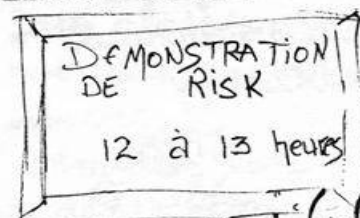 DéMONSTRATION
DE RISK
12 à 13 heures